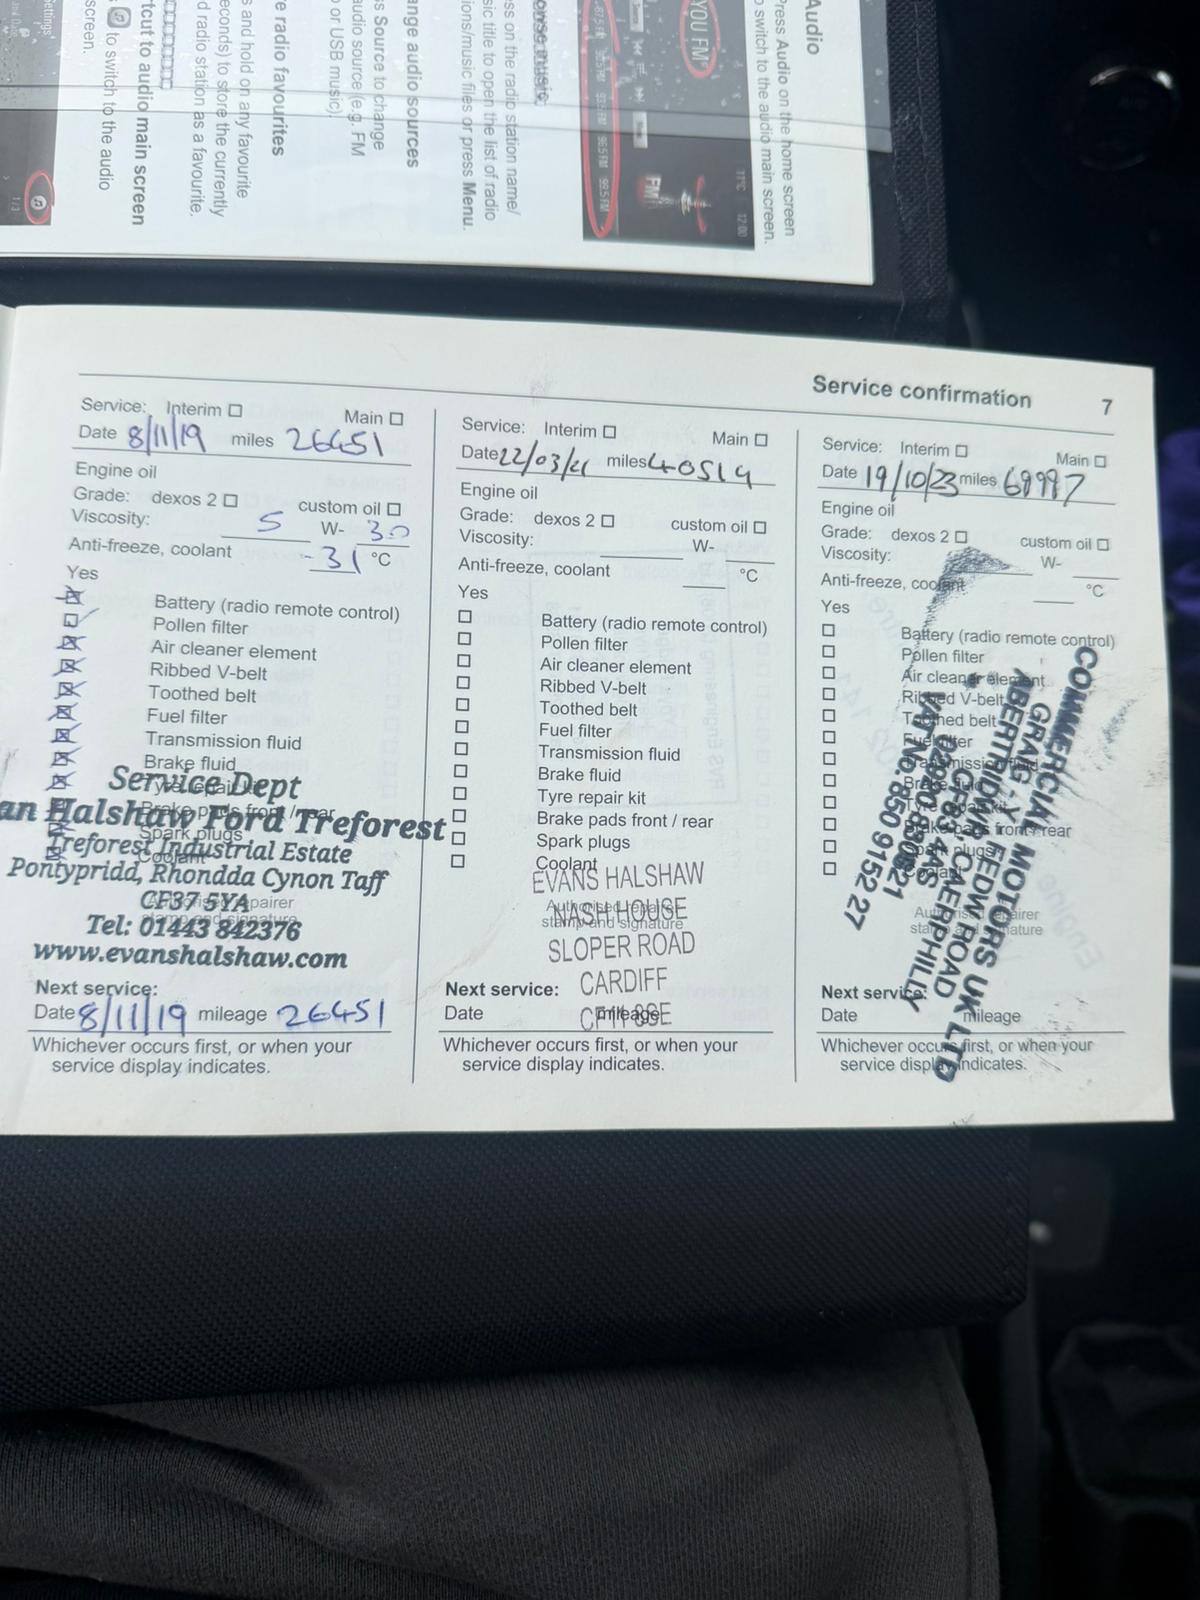 Audio
Press Audio on the home screen
switch to the audio main screen.
YOU FM
FM
11°C 12:00
Browse music
on the radio station name/
title to open the list of radio
/music files or press Menu.
audio sources
Source to change
audio source (e.g. FM
or USB music).
radio favourites
and hold on any favourite
to store the currently
radio station as a favourite.
to audio main screen
to switch to the audio
screen.
1/3
Service confirmation 7
Service: Interim Main
Date 8/11/19 miles 26451
Engine oil
Grade: dexos 2 custom oil
Viscosity: 5 W- 30
Anti-freeze, coolant -31 °C
Yes
Battery (radio remote control)
Pollen filter
Air cleaner element
Ribbed V-belt
Toothed belt
Fuel filter
Transmission fluid
Brake fluid
Tyre repair kit
Brake pads front / rear
Spark plugs
Coolant
Service Dept
Halshaw Ford Treforest
Treforest Industrial Estate
Pontypridd, Rhondda Cynon Taff
CF37 5YA
Tel: 01443 842376
www.evanshalshaw.com
Authorised repairer
stamp and signature
Next service:
Date 8/11/19 mileage 26451
Whichever occurs first, or when your
service display indicates.
Service: Interim Main
Date 22/03/21 miles 40514
Engine oil
Grade: dexos 2 custom oil
Viscosity: W-
Anti-freeze, coolant °C
Yes
Battery (radio remote control)
Pollen filter
Air cleaner element
Ribbed V-belt
Toothed belt
Fuel filter
Transmission fluid
Brake fluid
Tyre repair kit
Brake pads front / rear
Spark plugs
Coolant
EVANS HALSHAW
NASH HOUSE
SLOPER ROAD
CARDIFF
Authorised repairer
stamp and signature
Next service:
Date mileage
Whichever occurs first, or when your
service display indicates.
Service: Interim Main
Date 19/10/23 miles 69997
Engine oil
Grade: dexos 2 custom oil
Viscosity: W-
Anti-freeze, coolant °C
Yes
Battery (radio remote control)
Pollen filter
Air cleaner element
Ribbed V-belt
Toothed belt
Fuel filter
Transmission fluid
Brake fluid
Tyre repair kit
Brake pads front / rear
Spark plugs
Coolant
COMMERCIAL MOTORS UK LTD
GRAIG - Y - LEDWI ROAD
ABERTRIDWR, CAERPHILLY
No. 850 9152 27
Authorised repairer
stamp and signature
Next service:
Date mileage
Whichever occurs first, or when your
service display indicates.